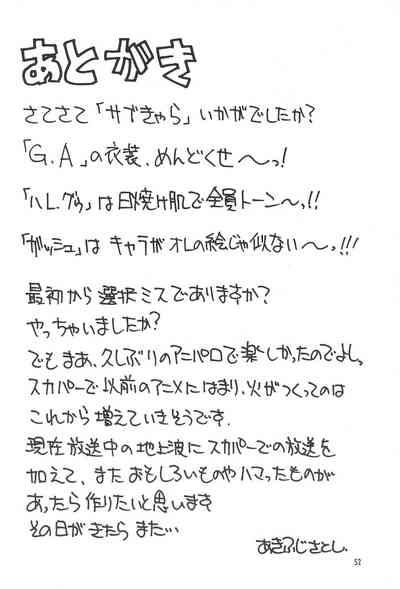 あとがき
さてさて「サブきゃら」いかがでしたか?
「G.A」の衣装、めんどくせ〜っ!
「ハレグゥ」は日焼け肌で全員トーン〜っ!!
「ガッシュ」は キャラがオレの絵じゃ似ない〜っ!!!
最初から選択ミスでありますか?
やっちゃいましたか?
でもまあ、久しぶりのアニパロで楽しかったのでよし。
スカパーで以前のアニメにはまり、火がつくってのは
これから増えていきそうです.
現在放送中の地上波にスカパーでの放送を
加えて、またおもしろいものやハマったものが
あったら作りたいと思います
その日がきたら また…
あきふじさとし.
52